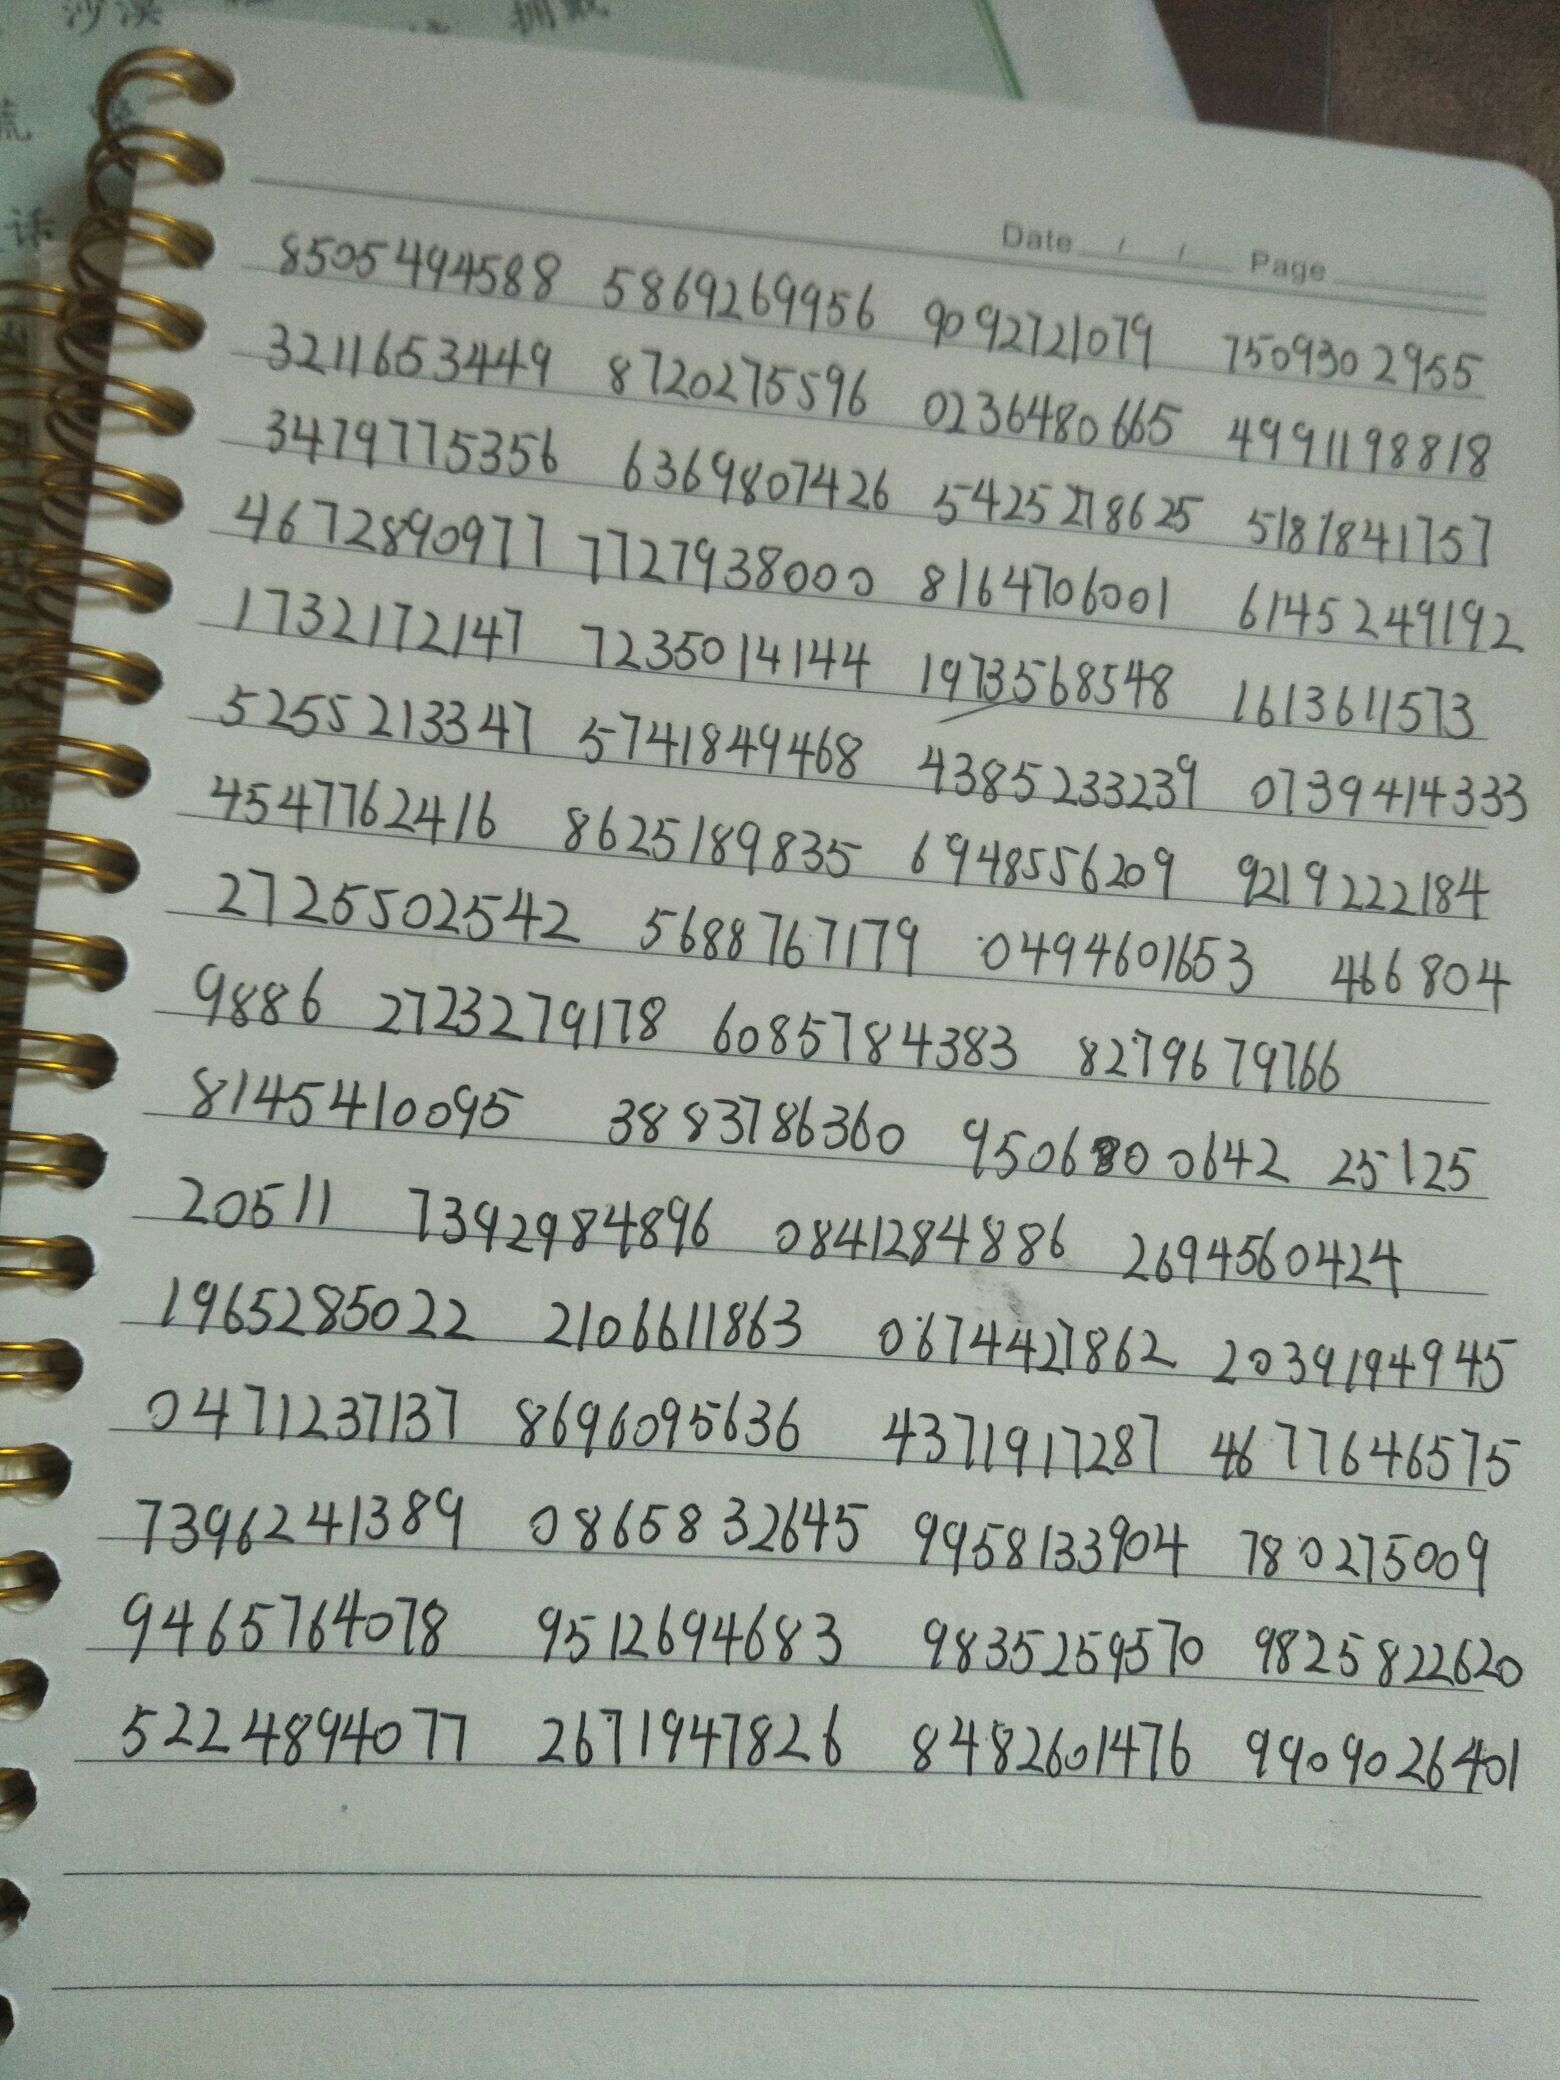 沙漠 拥戴
荒
诉
Date / / Page
8505494588 5869269956 9092721079 7509302955
3211653449 8720275596 0236480665 4991198818
3479775356 6369807426 5425278625 5181841757
4672890977 7727938000 8164706001 6145249192
1732172147 7235014144 1973568548 1613611573
5255213347 5741849468 4385233239 0739414333
4547762416 8625189835 6948556209 9219222184
2725502542 5688767179 0494601653 466804
9886 2723279178 6085784383 8279679766
8145410095 3883786360 9506800642 25125
20511 7392984896 0841284886 2694560424
1965285022 2106611863 0674427862 2039194945
0471237137 8696095636 4371917287 4677646575
7396241389 0865832645 9958133904 780275009
9465764078 9512694683 9835259570 9825822620
5224894077 2671947826 8482601476 9909026401